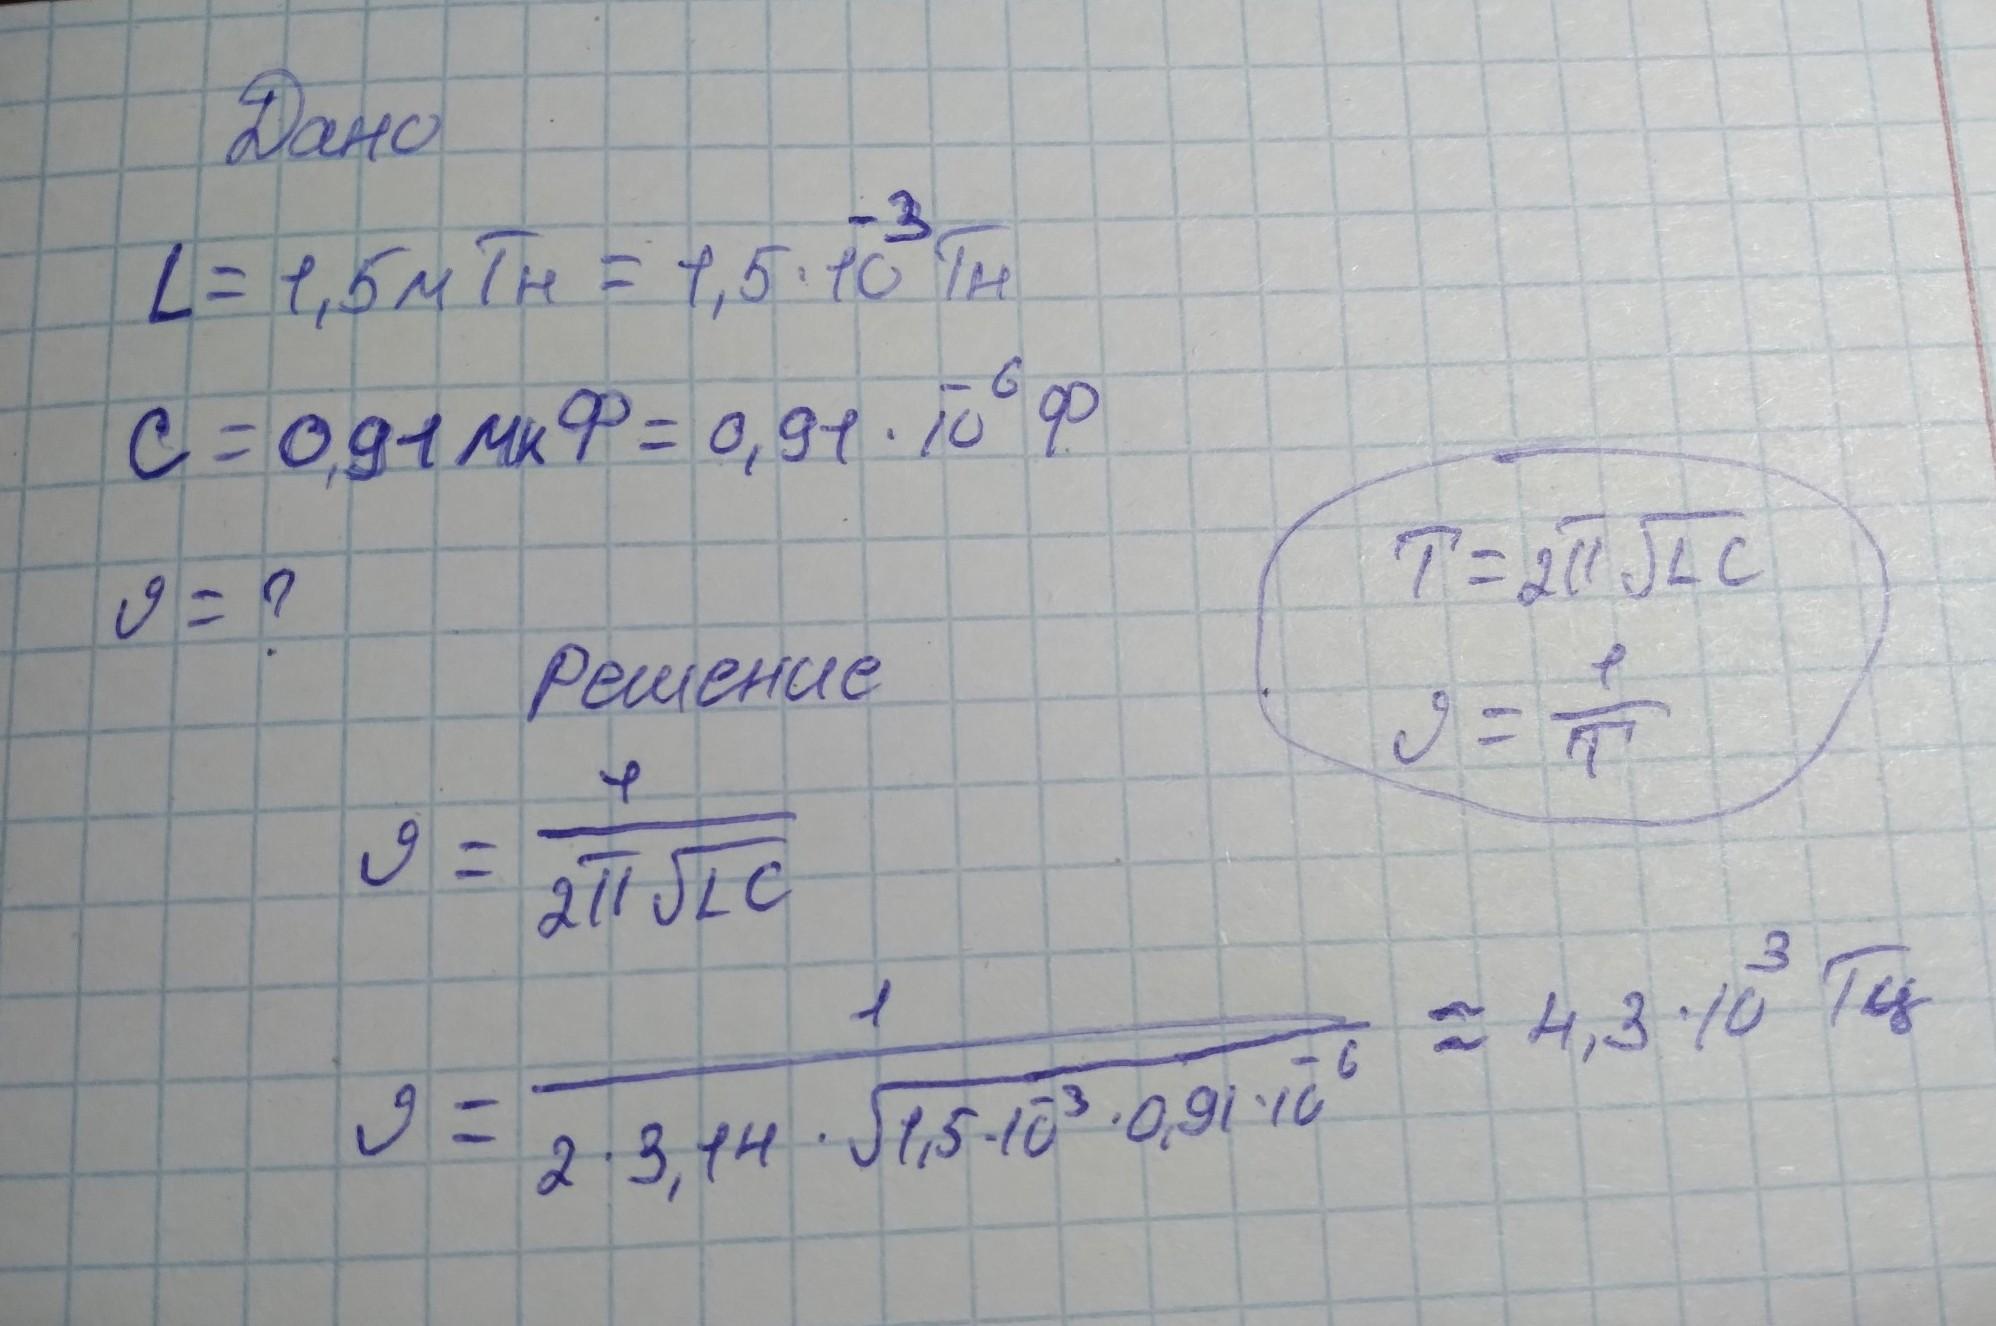 Дано
L = 1,5 мГн = 1,5·10⁻³ Гн
C = 0,91 мкФ = 0,91·10⁻⁶ Ф
ν = ?
T = 2π√LC
ν = 1/T
Решение
ν = 1/(2π√LC)
ν = 1/(2·3,14·√(1,5·10⁻³·0,91·10⁻⁶)) ≈ 4,3·10³ Гц